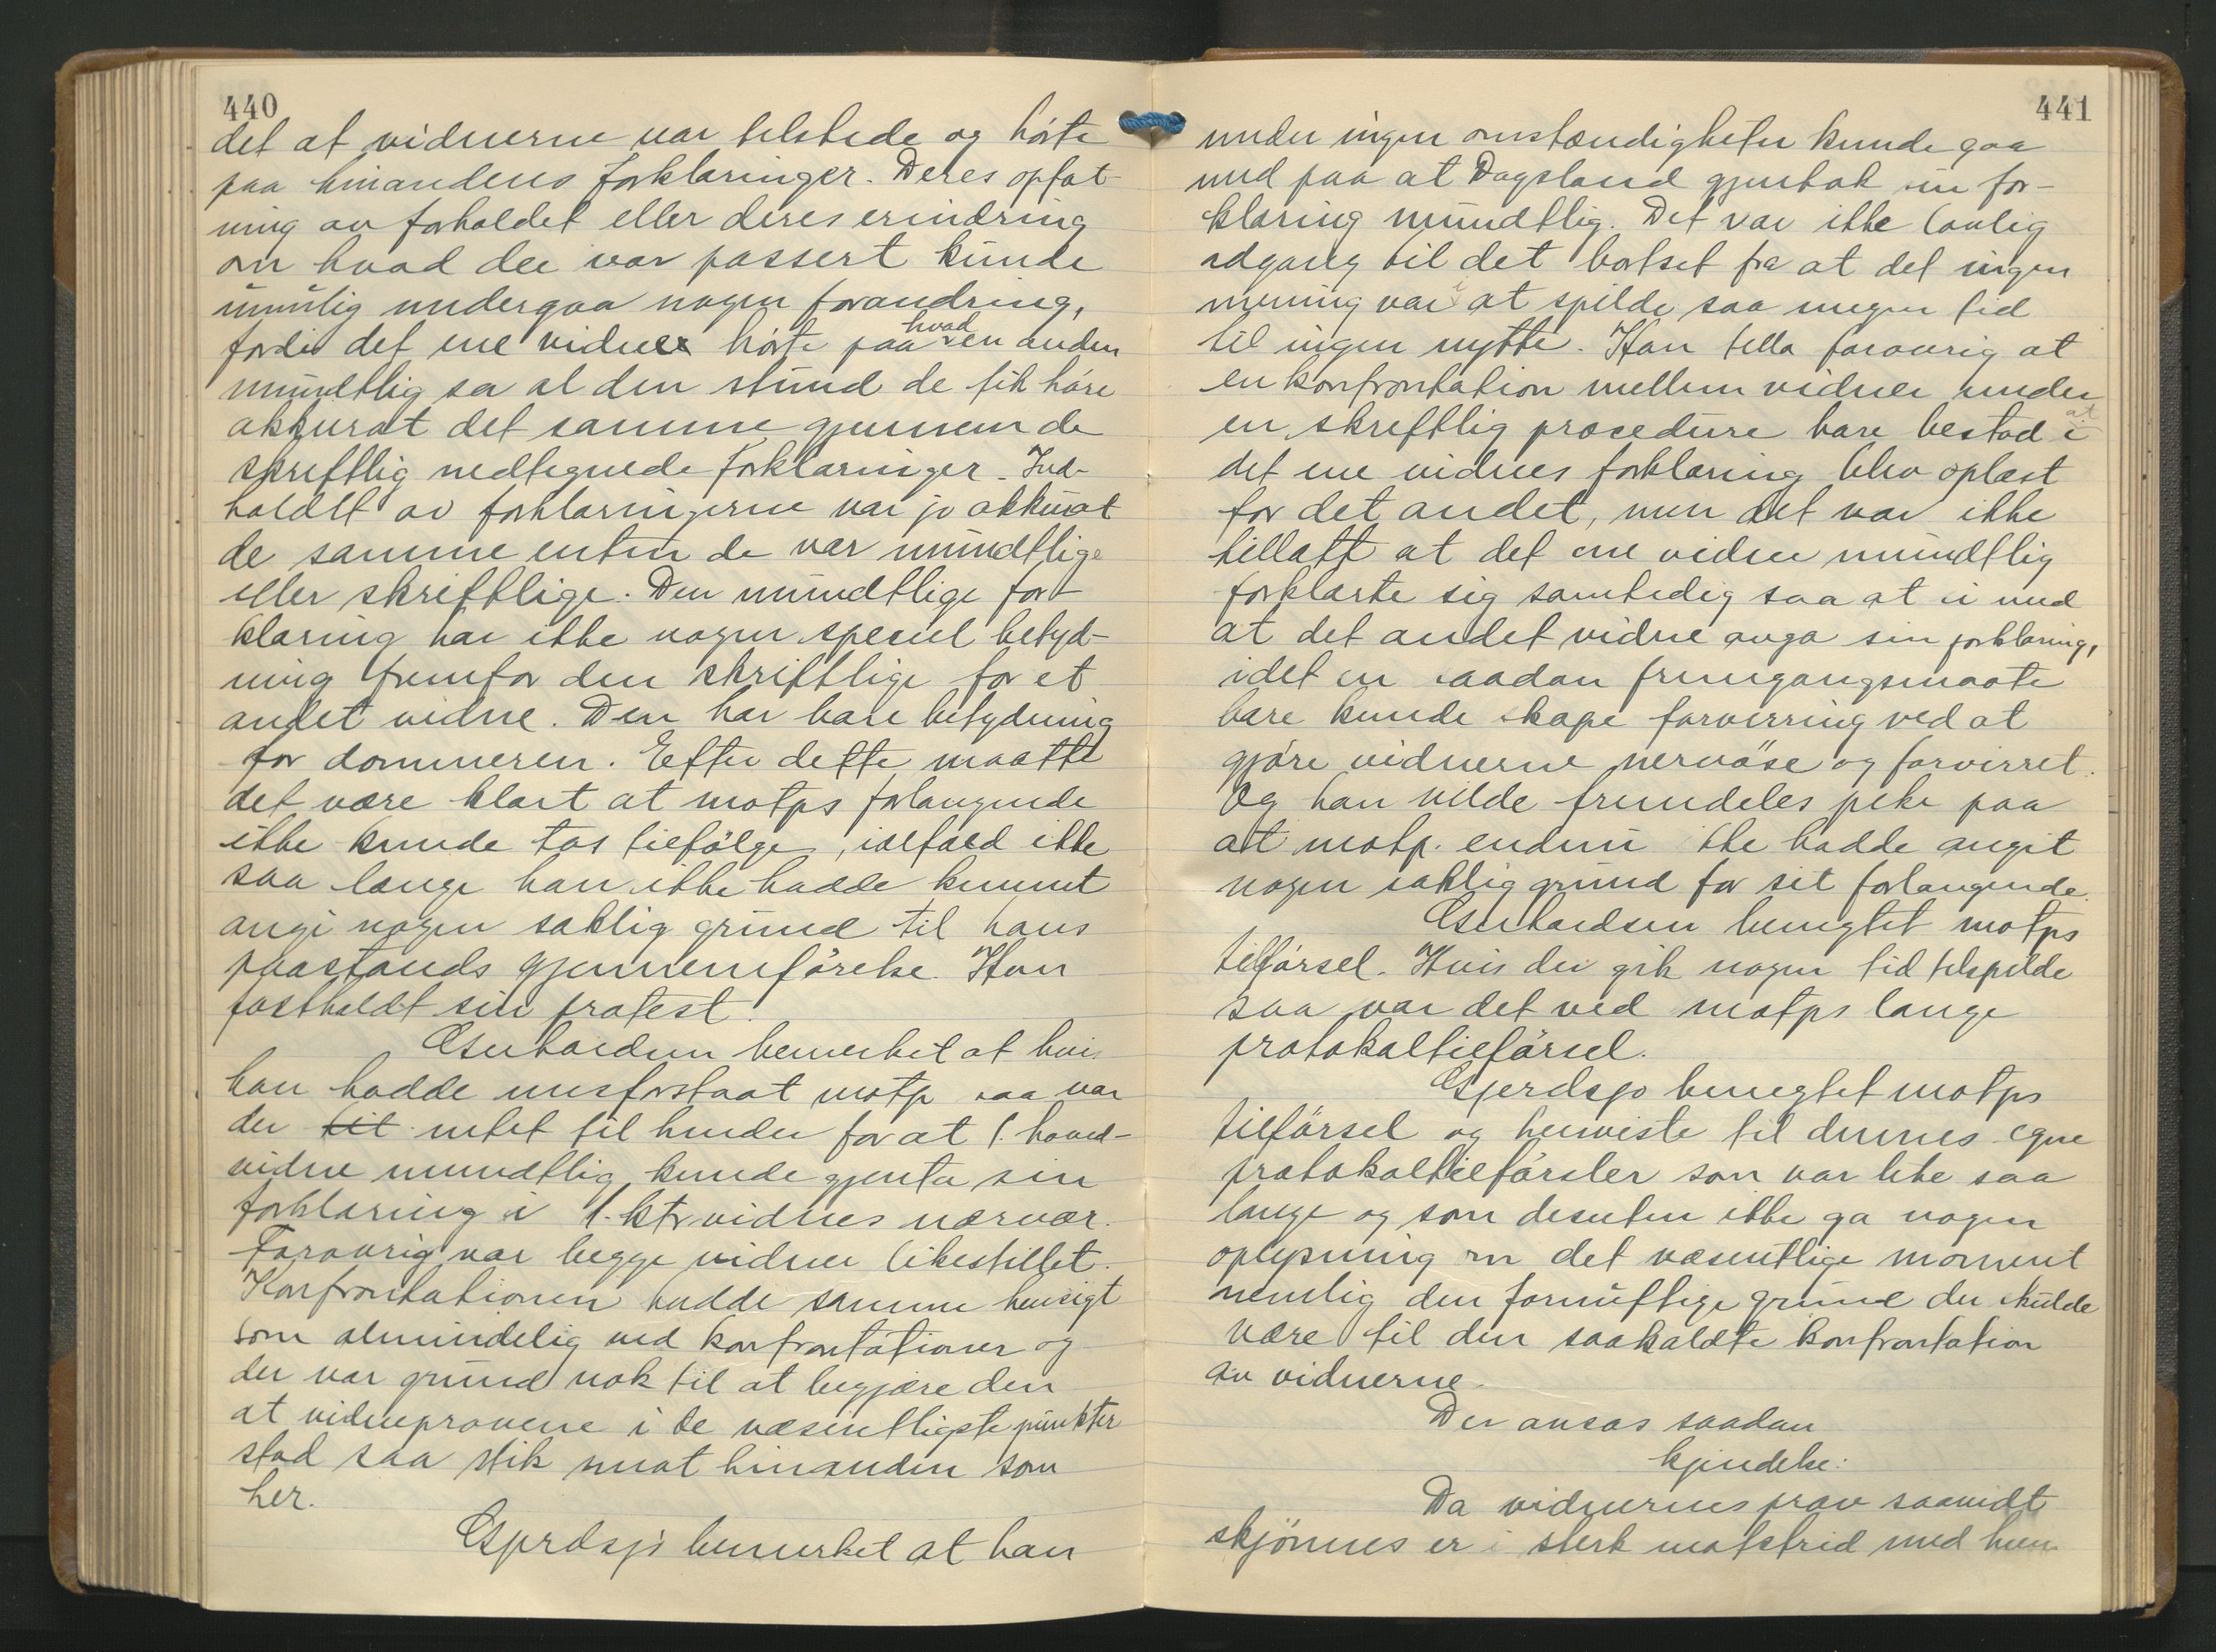 440
det at vidnerne var tilstede og hörte
paa hinandens forklaringer. Deres opfat-
ning av forholdet eller deres erindring
om hvad der var passert kunde
umulig undergaa nogen forandring,
fordi det ene vidne hörte paa hvad en anden
mundtlig sa al den stund de fik höre
akkurat det samme gjennem de
skriftlig nedtegnede forklaringer. Ind-
holdet av forklaringerne var jo akkurat
de samme enten de var mundtlige
eller skriftlige. Den mundtlige for-
klaring har ikke nogen speciel betyd-
ning fremfor den skriftlige for et
andet vidne. Den har bare betydning
for dommeren. Efter dette maatte
det være klart at motps forlangende
ikke kunde tas tilfölge, ialfald ikke
saa længe han ikke hadde kunnet
angi nogen saklig grund til hans
paastands gjennemförelse. Han
fastholdt sin protest.
bemerket at hvis
han hadde misforstaat motp saa var
der tit intet til hinder for at 1. hoved-
vidne mundtlig kunde gjenta sin
forklaring i 1. ktr vidnes nærvær.
Forøvrig var begge vidner likestillet.
Konfrontationen hadde samme hensigt
som almindelig ved konfrontationer og
der var grund nok til at begjære den
at vidneprovene i de væsentligste punkter
stod saa stik imot hinanden som
her.
Gjerdsjö bemerket at han
441
under ingen omstændigheter kunde gaa
med paa at Dagsland gjentok sin for-
klaring mundtlig. Det var ikke lovlig
adgang til det bortset fra at det ingen
mening var i at spilde saa megen tid
til ingen nytte. Han tilla forøvrig at
en konfrontation mellem vidner under
en skriftlig procedure bare bestod i at
det ene vidnes forklaring blev oplæst
for det andet, men det var ikke
tillatt at det ene vidne mundtlig
forklarte sig samtidig saa at si med
at det andet vidne avga sin forklaring,
idet en saadan fremgangsmaate
bare kunde skape forvirring ved at
gjöre vidnerne nervöse og forvirret.
Og han vilde fremdeles peke paa
at motp. endnu ikke hadde angit
nogen saklig grund for sit forlangende.
benegtet motps
tilförsel. Hvis der gik nogen tid tilspilde
saa var det ved motps lange
protokoltilförsel.
Gjerdsjø benegtet motps
tilförsel og henviste til dennes egne
protokoltilförsler som var like saa
lange og som desuten ikke ga nogen
oplysning om det væsentlige moment
nemlig den fornuftige grund der skulde
være til den saakaldte konfrontation
av vidnerne.
Der avsas saadan
kjendelse:
Da vidnernes prov saavidt
skjönnes er i sterk motstrid med hin